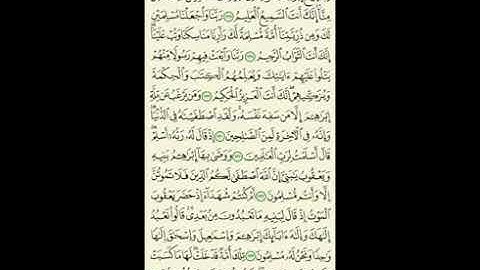 مِنَّا إِنَّكَ أَنتَ السَّمِيعُ الْعَلِيمُ ١٢٧ رَبَّنَا وَاجْعَلْنَا مُسْلِمَيْنِ
لَكَ وَمِن ذُرِّيَّتِنَا أُمَّةً مُّسْلِمَةً لَّكَ وَأَرِنَا مَنَاسِكَنَا وَتُبْ عَلَيْنَا
إِنَّكَ أَنتَ التَّوَّابُ الرَّحِيمُ ١٢٨ رَبَّنَا وَابْعَثْ فِيهِمْ رَسُولًا مِّنْهُمْ
يَتْلُوا عَلَيْهِمْ ءَايَٰتِكَ وَيُعَلِّمُهُمُ الْكِتَٰبَ وَالْحِكْمَةَ
وَيُزَكِّيهِمْ إِنَّكَ أَنتَ الْعَزِيزُ الْحَكِيمُ ١٢٩ وَمَن يَرْغَبُ عَن مِّلَّةِ
إِبْرَٰهِۦمَ إِلَّا مَن سَفِهَ نَفْسَهُۥ وَلَقَدِ اصْطَفَيْنَٰهُ فِي الدُّنْيَا
وَإِنَّهُۥ فِي الْءَاخِرَةِ لَمِنَ الصَّٰلِحِينَ ١٣٠ إِذْ قَالَ لَهُۥ رَبُّهُۥ أَسْلِمْ
قَالَ أَسْلَمْتُ لِرَبِّ الْعَٰلَمِينَ ١٣١ وَوَصَّىٰ بِهَا إِبْرَٰهِۦمُ بَنِيهِ
وَيَعْقُوبُ يَٰبَنِيَّ إِنَّ اللَّهَ اصْطَفَىٰ لَكُمُ الدِّينَ فَلَا تَمُوتُنَّ
إِلَّا وَأَنتُم مُّسْلِمُونَ ١٣٢ أَمْ كُنتُمْ شُهَدَاءَ إِذْ حَضَرَ يَعْقُوبَ
الْمَوْتُ إِذْ قَالَ لِبَنِيهِ مَا تَعْبُدُونَ مِن بَعْدِي قَالُوا نَعْبُدُ
إِلَٰهَكَ وَإِلَٰهَ ءَابَائِكَ إِبْرَٰهِۦمَ وَإِسْمَٰعِيلَ وَإِسْحَٰقَ إِلَٰهًا
وَٰحِدًا وَنَحْنُ لَهُۥ مُسْلِمُونَ ١٣٣ تِلْكَ أُمَّةٌ قَدْ خَلَتْ لَهَا مَا كَسَبَتْ